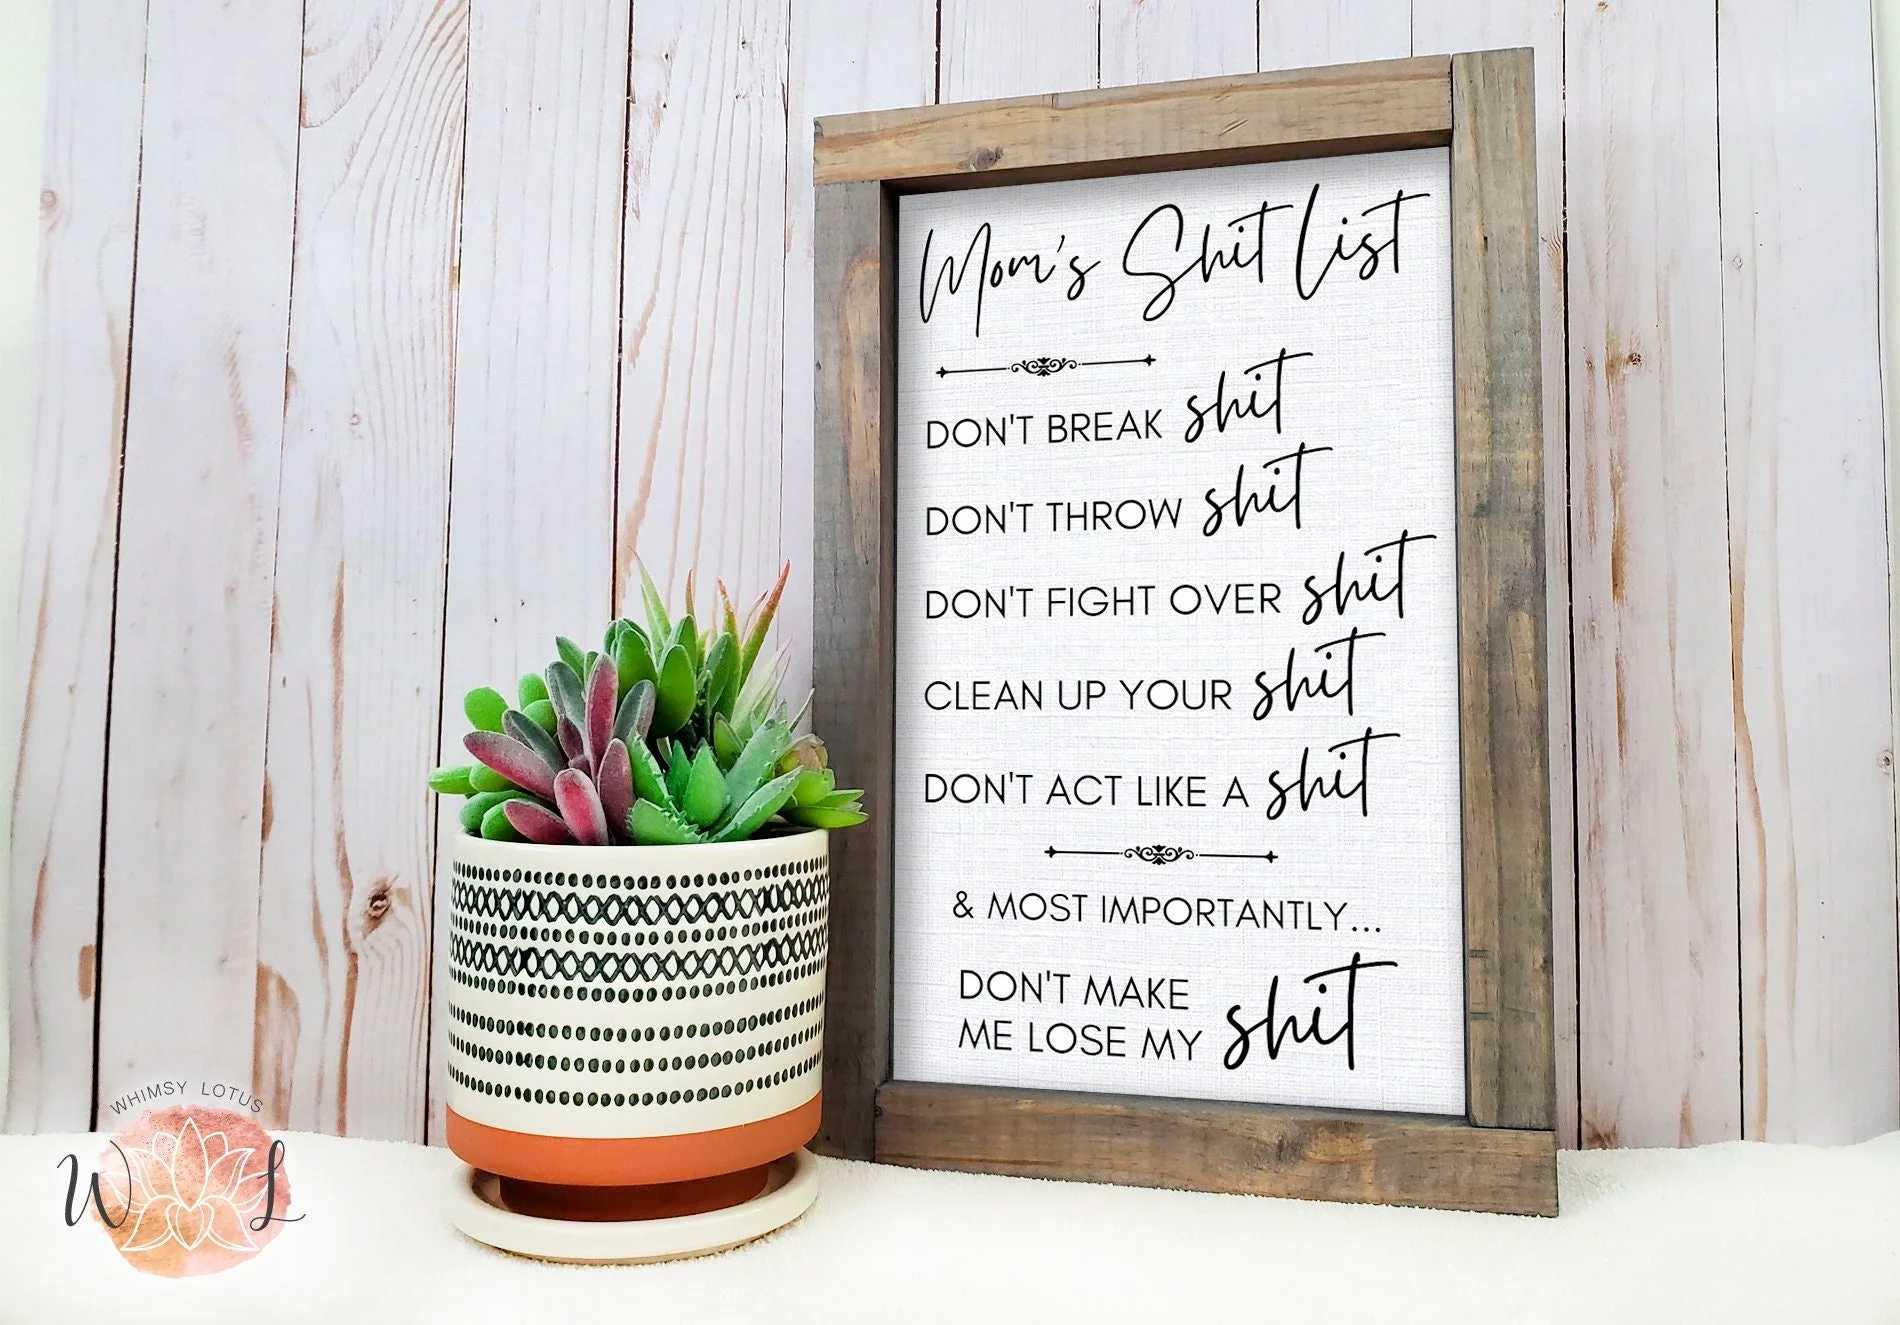 Mom's Shit List
DON'T BREAK shit
DON'T THROW shit
DON'T FIGHT OVER shit
CLEAN UP YOUR shit
DON'T ACT LIKE A shit
& MOST IMPORTANTLY...
DON'T MAKE
ME LOSE MY shit
WHIMSY LOTUS
W L